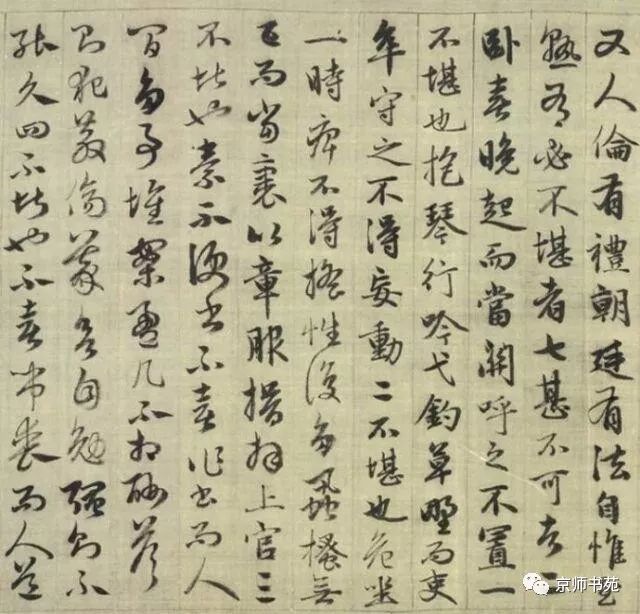 又人倫有禮朝廷有法自惟至
熟有必不堪者七甚不可者二
臥喜晚起而當關呼之不置一
不堪也抱琴行吟弋釣草野而吏
卒守之不得妄動二不堪也危坐
一時痹不得搖性復多蝨搔無
已而當裹以章服揖拜上官三
不堪也素不便書不喜作書而人
間多事堆案盈几不相酬答
則犯教傷義欲自勉強則不
能久四不堪也不喜弔喪而人道
京师书苑